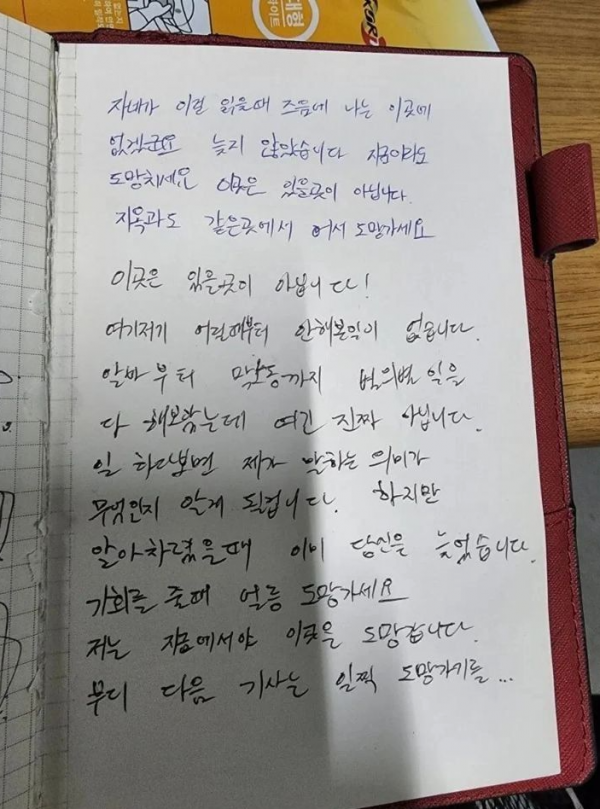 대형
라이트
KOKI
자네가 이걸 읽을때 즈음에 나는 이곳에
없겠군요 늦지 않았습니다 지금이라도
도망치세요 이곳은 있을곳이 아닙니다.
지옥과도 같은곳에서 어서 도망가세요
이곳은 있을곳이 아닙니다!
여기저기 어릴때부터 안해본일이 없습니다.
알바부터 막노동까지 별의별 일을
다 해보았는데 여긴 진짜 아닙니다.
일 하다보면 제가 말하는 의미가
무엇인지 알게 될겁니다. 하지만
알아차렸을때 이미 당신은 늦었습니다.
기회를 줄때 얼릉 도망가세요
저는 지금에서야 이곳을 도망갑니다.
부디 다음 기사는 일찍 도망가기를...